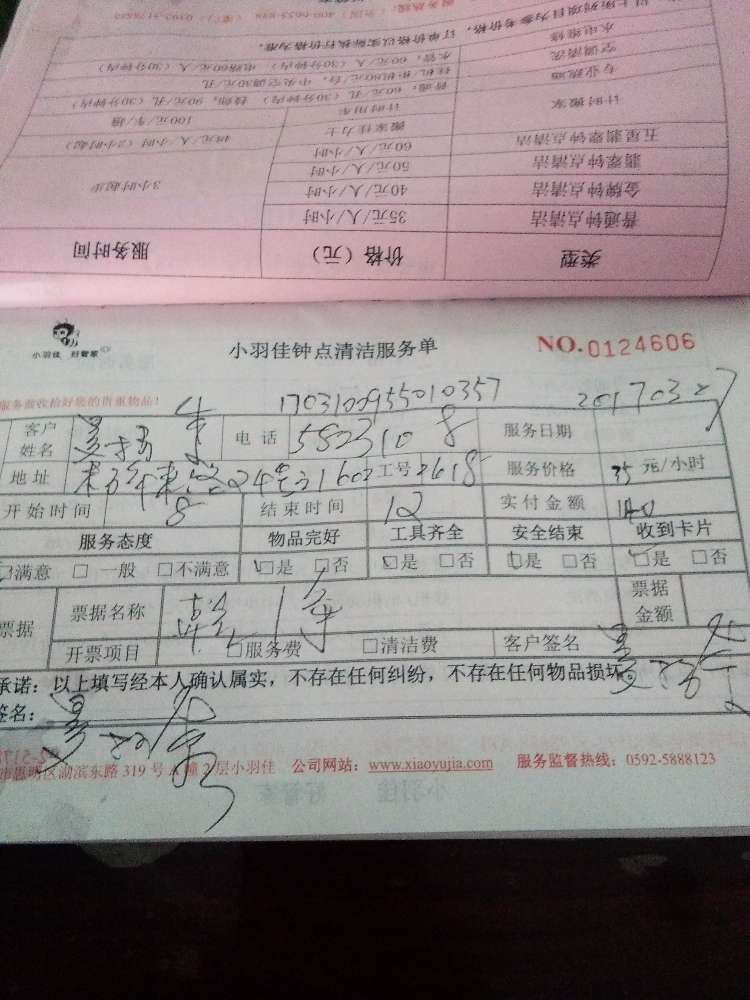 服务热线：400-6655-888（全国）
以上所列项目为参考价格，订单价格以实际执行价格为准。
水电维修 水管，60元/人/（30分钟内） 电路60元/（30分钟内）
空调清洗 挂机柜机80元/台，中央空调30元/孔
专业疏通 普通：60元/孔（30分钟内） 技师，90元/孔（30分钟内）
计时搬家 计时用车 100元/车/趟
搬家佳力士 48元/人/小时（2小时起）
五星翡翠钟点清洁 60元/人/小时
翡翠钟点清洁 50元/人/小时
金牌钟点清洁 40元/人/小时 3小时起步
普通钟点清洁 35元/人/小时
类型 价格（元） 服务时间
小羽佳 好管家
小羽佳钟点清洁服务单 NO.0124606
服务前收拾好您的贵重物品！
1703100955010357 20170327
客户姓名 电话 5823108 服务日期
地址 24号31602 工号 2618 服务价格 35 元/小时
开始时间 8 结束时间 12 实付金额 140
服务态度 物品完好 工具齐全 安全结束 收到卡片
满意 □ 一般 □不满意 □是 □否 □是 □否 □是 □否 □是 □否
票据 票据名称 票据金额
开票项目 □服务费 □清洁费 客户签名
承诺：以上填写经本人确认属实，不存在任何纠纷，不存在任何物品损坏
签名：
市思明区湖滨东路 319 号 A 幢 2 层小羽佳 公司网站：www.xiaoyujia.com 服务监督热线：0592-5888123